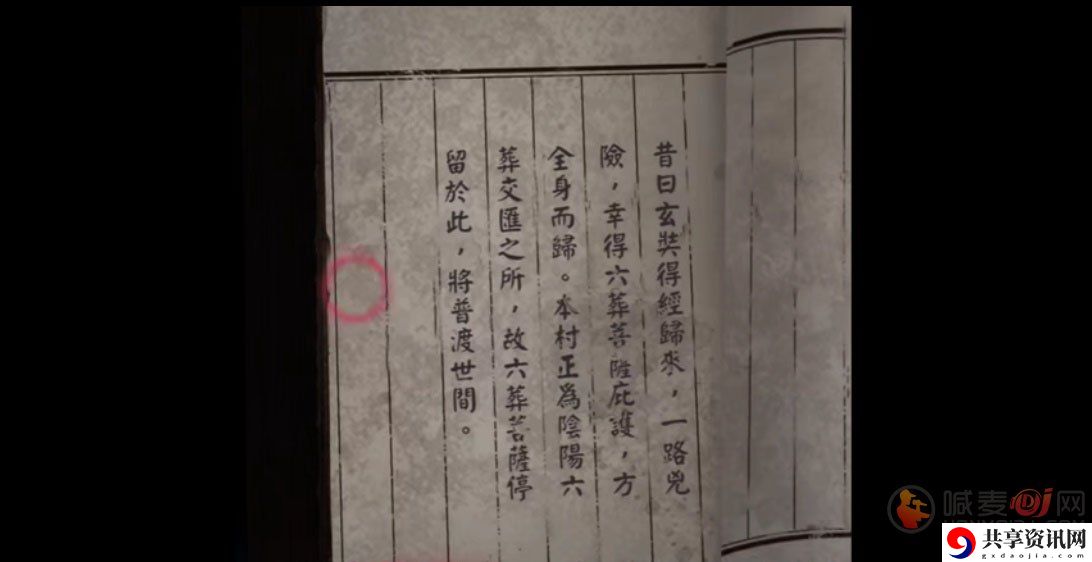 昔日玄奘得經歸來，一路兇
險，幸得六葬菩薩庇護，方
全身而歸。本村正為陰陽六
葬交匯之所，故六葬菩薩停
留於此，將普渡世間。
喊麦DJ网
共享资讯网
gxdaojia.com